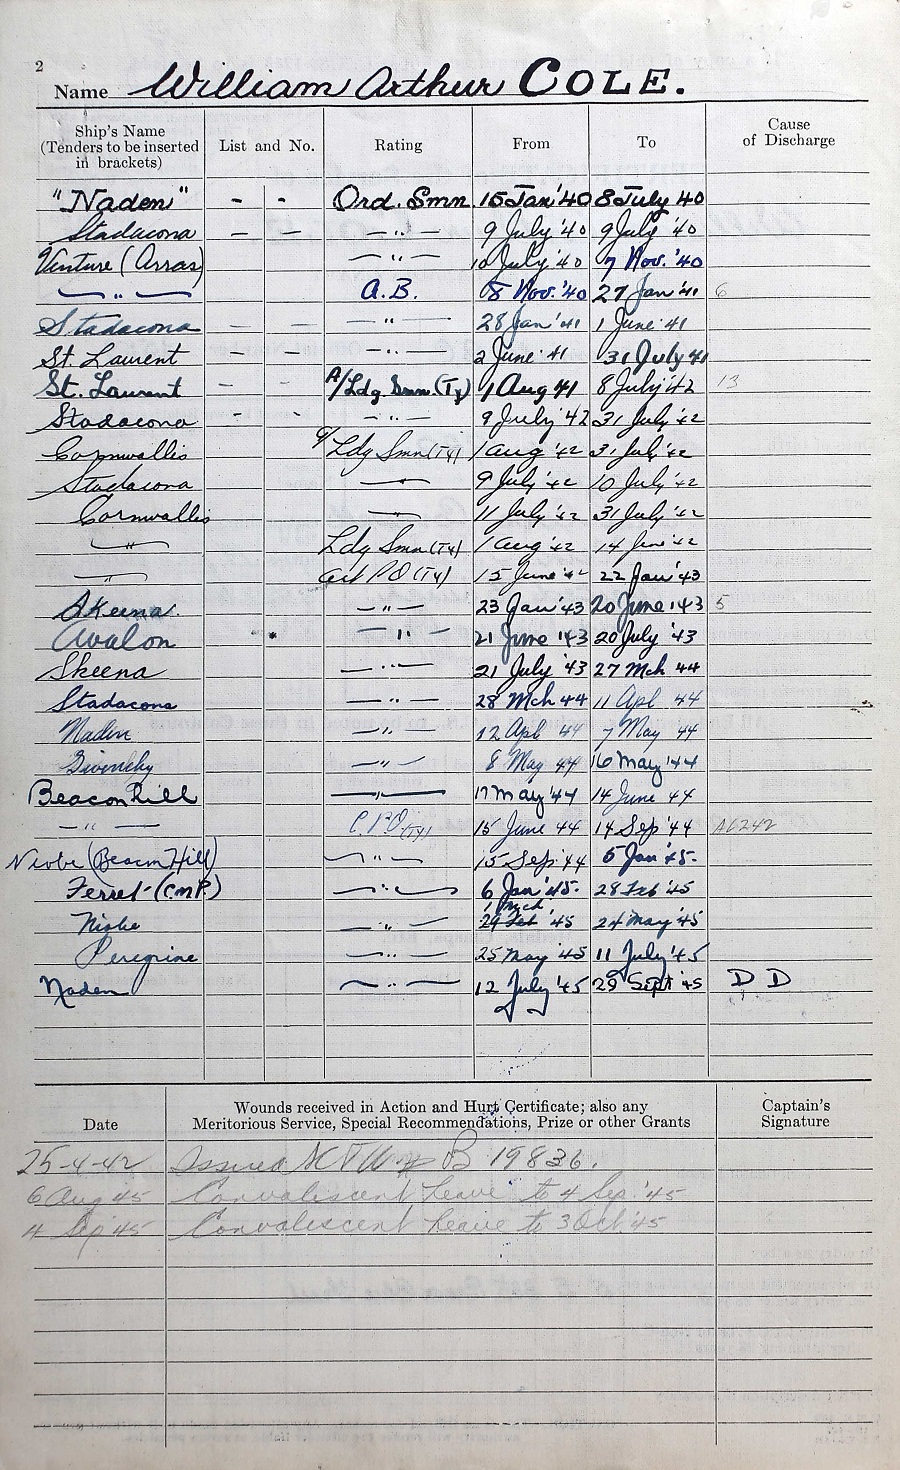 2
Name William Arthur COLE.
Ship's Name (Tenders to be inserted in brackets) List and No. Rating From To Cause of Discharge
"Naden" - - Ord. Smn 15 Jan '40 8 July 40
Stadacona — — —„— 9 July '40 9 July '40
Venture (Arras) —„— 10 July '40 7 Nov. '40
—„— A.B. 8 Nov. '40 27 Jan '41 6
Stadacona — — „— 28 Jan '41 1 June '41
St. Laurent — — —„— 2 June '41 31 July 41
St. Laurent — — A/Ldg Smn. (Ty) 1 Aug 41 8 July '42 13
Stadacona - - —„— 9 July '42 31 July '42
Cornwallis Ldg Smn (Ty) 1 Aug '42 31 July '42
Stadacona — 9 July '42 10 July '42
Cornwallis — 11 July '42 31 July '42
—„— Ldg Smn (Ty) 1 Aug '42 14 June '42
—„— PO (Ty) 15 June '42 22 Jan '43
Skeena —„— 23 Jan '43 20 June '43 5
Avalon —„— 21 June '43 20 July '43
Skeena —„— 21 July '43 27 Mch 44
Stadacona —„— 28 Mch 44 11 Apl 44
Naden —„— 12 Apl 44 7 May 44
Givenchy —„— 8 May 44 16 May '44
Beacon Hill —„— 17 May '44 14 June 44
—„— C.P.O (Ty) 15 June 44 14 Sep '44 A6242
Niobe (Beacon Hill) —„— 15 Sep '44 5 Jan '45.
Ferret (C.M.P.) —„— 6 Jan '45. 28 Feb '45
Niobe —„— 1 Mch 29 Feb '45 24 May '45
Peregrine —„— 25 May '45 11 July '45
Naden —„— 12 July '45 29 Sept '45 D D
Date Wounds received in Action and Hurt Certificate; also any Meritorious Service, Special Recommendations, Prize or other Grants Captain's Signature
25-4-42 Issued B 19836.
6 Aug 45 Convalescent Leave to 4 Sep. '45
4 Sep '45 Convalescent Leave to 3 Oct '45